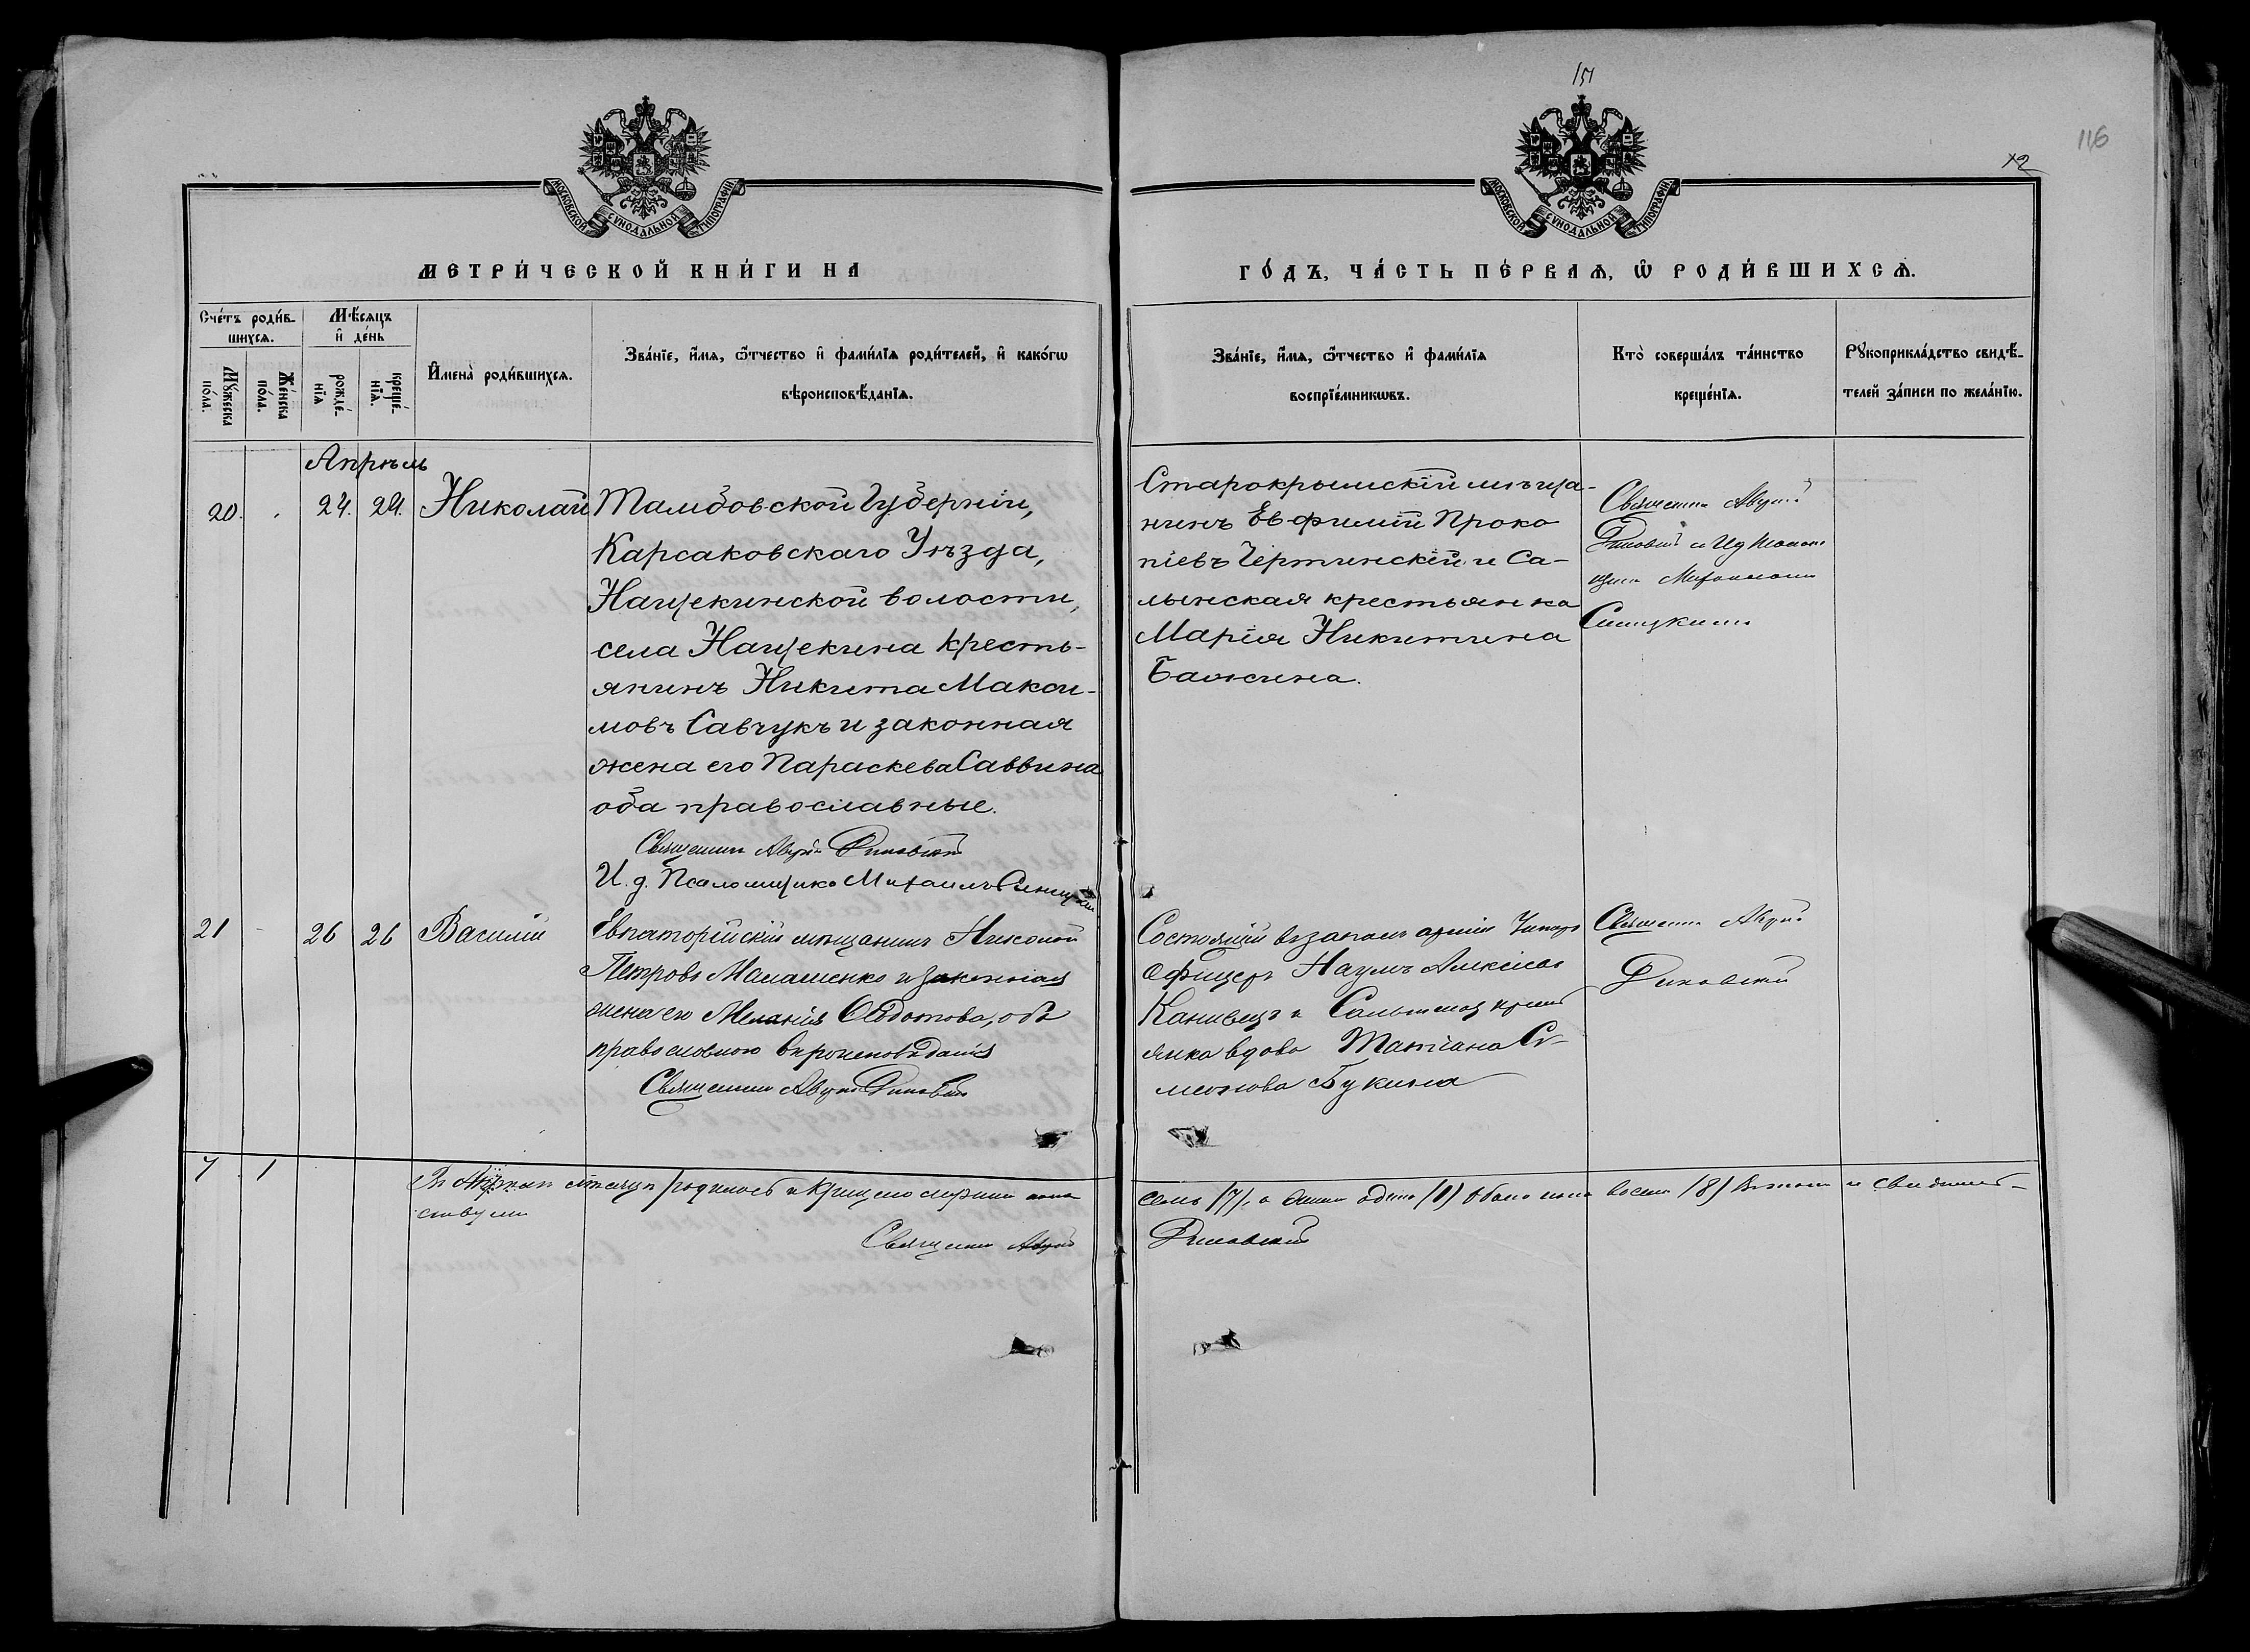 151
116
12
МОСКОВСКОЙ СУНОДАЛЬНОЙ ТИПОГРАФІИ.
МОСКОВСКОЙ СУНОДАЛЬНОЙ ТИПОГРАФІИ.
МЕТРИ́ЧЕСКОЙ КНИ́ГИ НА
ГО́ДЪ, ЧА́СТЬ ПЕ́РВАѦ, Ѡ҆ РОДИ́ВШИХСѦ.
Сче́тъ роди́в-
шихсѧ.
Мꙋжеска по́ла.
Же́нска по́ла.
Мѣ́сѧцъ
и҆ де́нь
рожде́-
нїѧ
креще́-
нїѧ.
И҆мена̀ роди́вшихсѧ.
Зва́нїе, и҆́мѧ, ѻ҆́тчество и҆ фами́лїѧ роди́телей, и҆ како́гѡ
вѣроисповѣ́данїѧ.
Зва́нїе, и҆́мѧ, ѻ҆́тчество и҆ фами́лїѧ
воспрїе́мникѡвъ.
Кто̀ соверша́лъ та́инство
креще́нїѧ.
Рꙋкоприкла́дство свидѣ́-
телей за́писи по жела́нїю.
Апрѣль
20. 24. 29. Николай
Тамбовской Губерніи,
Карсаковскаго Уѣзда,
Нащекинской волости,
села Нащекина кресть-
янинъ Никита Макси-
мовъ Савчукъ и законная
жена его Параскева Саввина
оба православные.
Священникъ
И. д. Псаломщика Михаилъ
Старокрымскій мѣща-
нинъ Евфимій Проко
піевъ Чертинскій и Са-
лынская крестьянка
Марія Никитина
Бажина.
Священникъ
и Ид Псалом
щика
21 - 26 26 Василій
Евпаторійскій мѣщанинъ Николай
Петровъ Малашенко и законная
жена его Меланія Ѳедотова, оба
православнаго вѣроисповѣданія
Священникъ
Состоящій въ запасѣ арміи Унтеръ
Офицеръ Наумъ Алексѣевъ
Канивецъ и крест
янка вдова Татіана Си-
меонова Букина
Священникъ
7 1
Въ Апрѣлѣ мѣсяцѣ родилось и крещено мужска пола
семь /7/, а женска одинъ /1/ обоего пола восемь /8/ въ томъ и свидѣтель-
ствуемъ
Священникъ